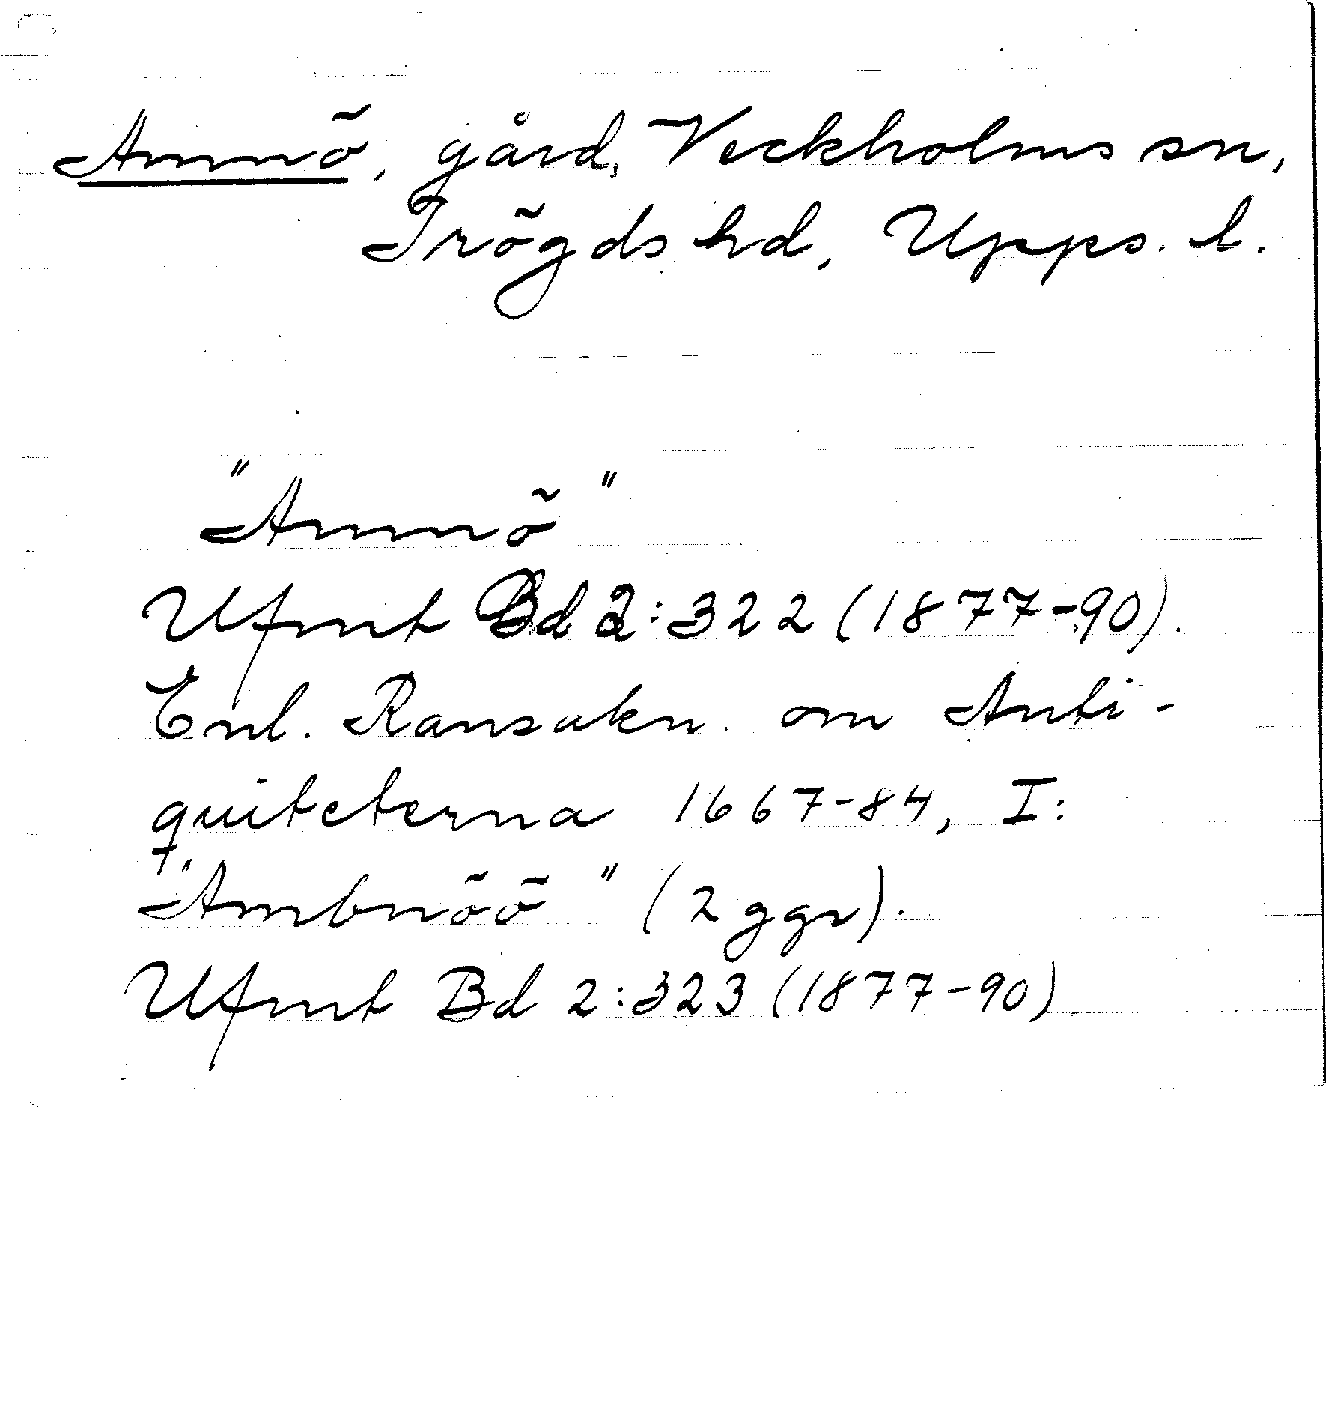 Amnö, gård, Veckholms sn,
Trögds hd, Upps. l.
"Amnö"
Ufmt Bd 2:322 (1877-90).
Enl. Ransakn. om Anti-
quiteterna 1667-84, I:
"Ambnöö" (2 ggr).
Ufmt Bd 2:323 (1877-90)